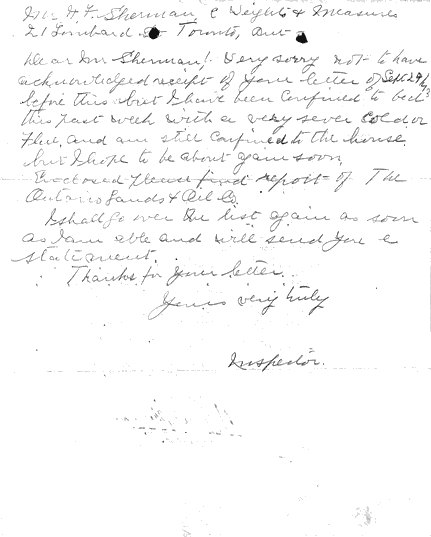 Mr H. F. Sherman, c Weights & Measures
21 Lombard St Toronto, Ont
Dear Mr Sherman! Very sorry not to have
acknowledged receipt of your letter of Sept. 29th
before this but I have been confined to bed
this past week with a very sever cold or
Flue, and am still confined to the house
but I hope to be about again soon,
Enclosed please find report of The
Ontario Lands & Oil Co.
I shall go over the list again as soon
as I am able and will send you a
statement.
Thanks for your letter.
Yours very truly
Inspector.